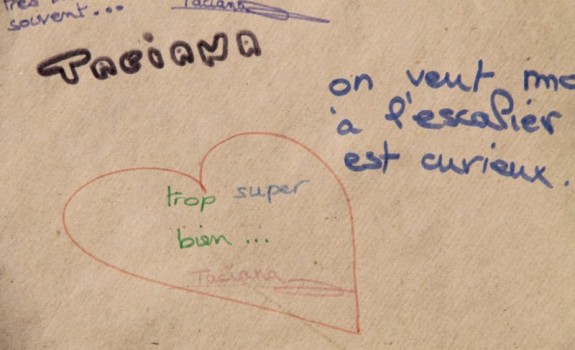 souvent... Taciana
TACIANA
on veut mo
à l'escalier
est curieux.
trop super
bien ...
Taciana